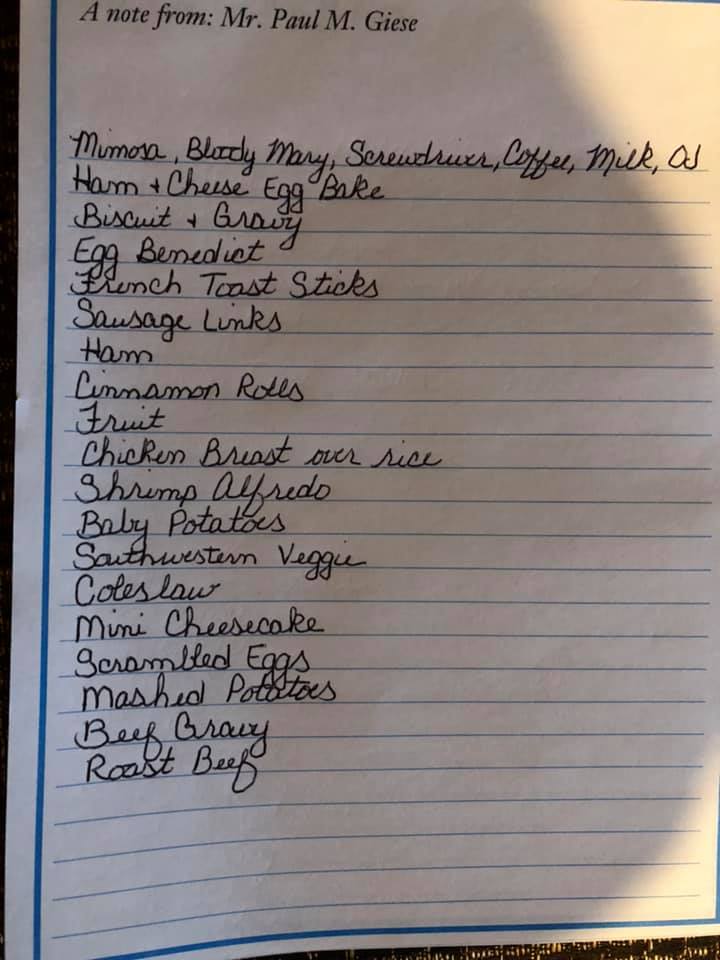 A note from: Mr. Paul M. Giese
Mimosa, Bloody Mary, Screwdriver, Coffee, Milk, OJ
Ham + Cheese Egg Bake
Biscuit + Gravy
Egg Benedict
French Toast Sticks
Sausage Links
Ham
Cinnamon Rolls
Fruit
Chicken Breast over rice
Shrimp Alfredo
Baby Potatoes
Southwestern Veggie
Coleslaw
Mini Cheesecake
Scrambled Eggs
Mashed Potatoes
Beef Gravy
Roast Beef